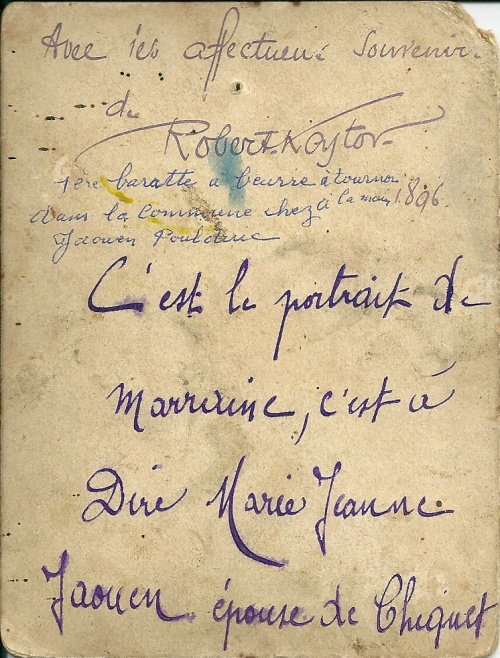 Avec ses affectueux Souvenirs
de
Robert Kaytor
1ère baratte à beurre à tourner
à la main 1896.
dans la Commune chez
Jaouen Poulduc
C'est le portrait de
Marraine, c'est à
Dire Marie Jeanne
Jaouen épouse de Chiquet